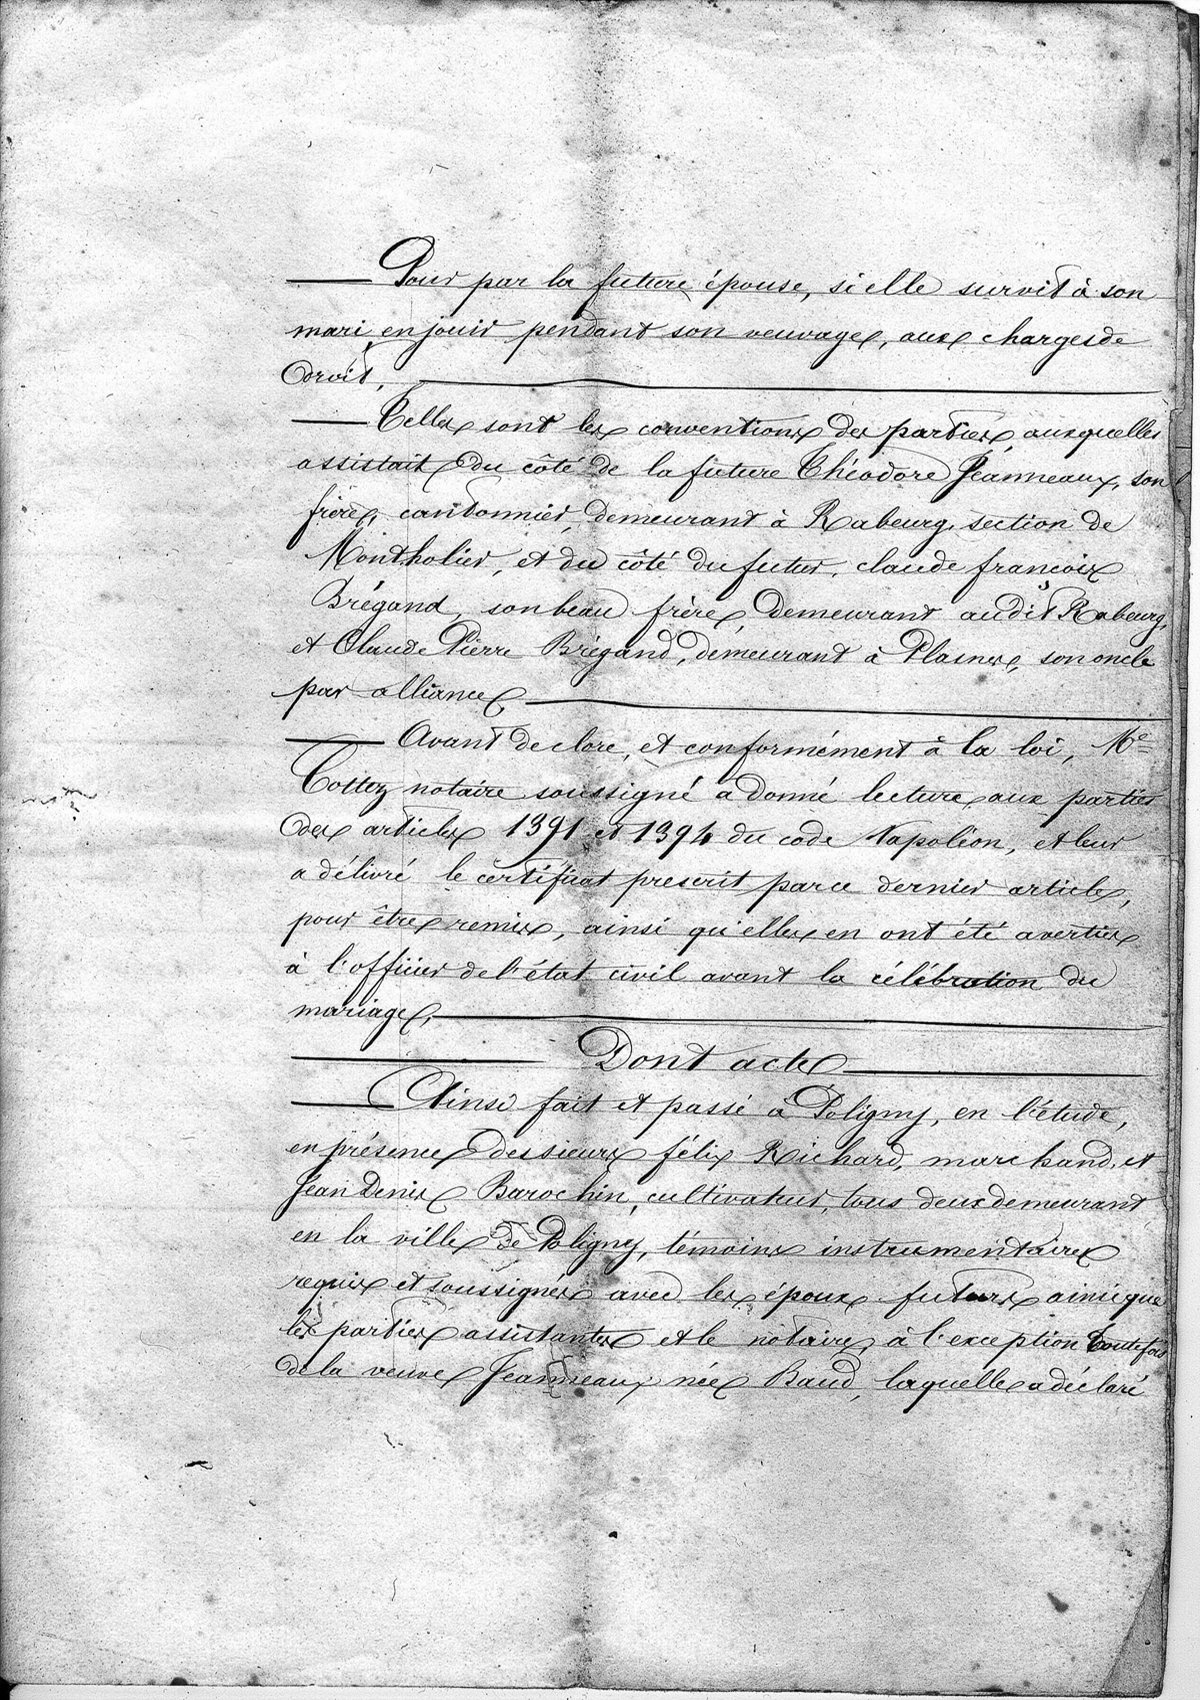 Pour par la future épouse, si elle survit à son
mari, en jouir pendant son veuvage, aux charges de
droit.
Telles sont les conventions des parties, auxquelles
assistait du côté de la future Théodore Jeanneaux, son
frère, cantonnier, demeurant à Rabeurg, section de
Montholier, et du côté du futur, claude françois
Brégand, son beau frère, demeurant audit Rabeurg,
et Claude Pierre Brégand, demeurant à Plasnes, son oncle
par alliance,
Avant de clore, et conformément à la loi, Me
Tottez notaire soussigné a donné lecture aux parties
des articles 1391 et 1394 du code Napoléon, et leur
a délivré le certificat prescrit par ce dernier article,
pour être remis, ainsi qu'elles en ont été averties
à l'officier de l'état civil avant la célébration du
mariage.
Dont acte
Ainsi fait et passé à Poligny, en l'étude,
en présence des sieurs félix Richard, marchand, et
Jean Denis Barochin, cultivateur, tous deux demeurant
en la ville de Poligny, témoins instrumentaires
requis et soussignés avec les époux futurs ainsi que
les parties assistantes et le notaire, à l'exception toutefois
de la veuve Jeanneaux née Baud, laquelle a déclaré